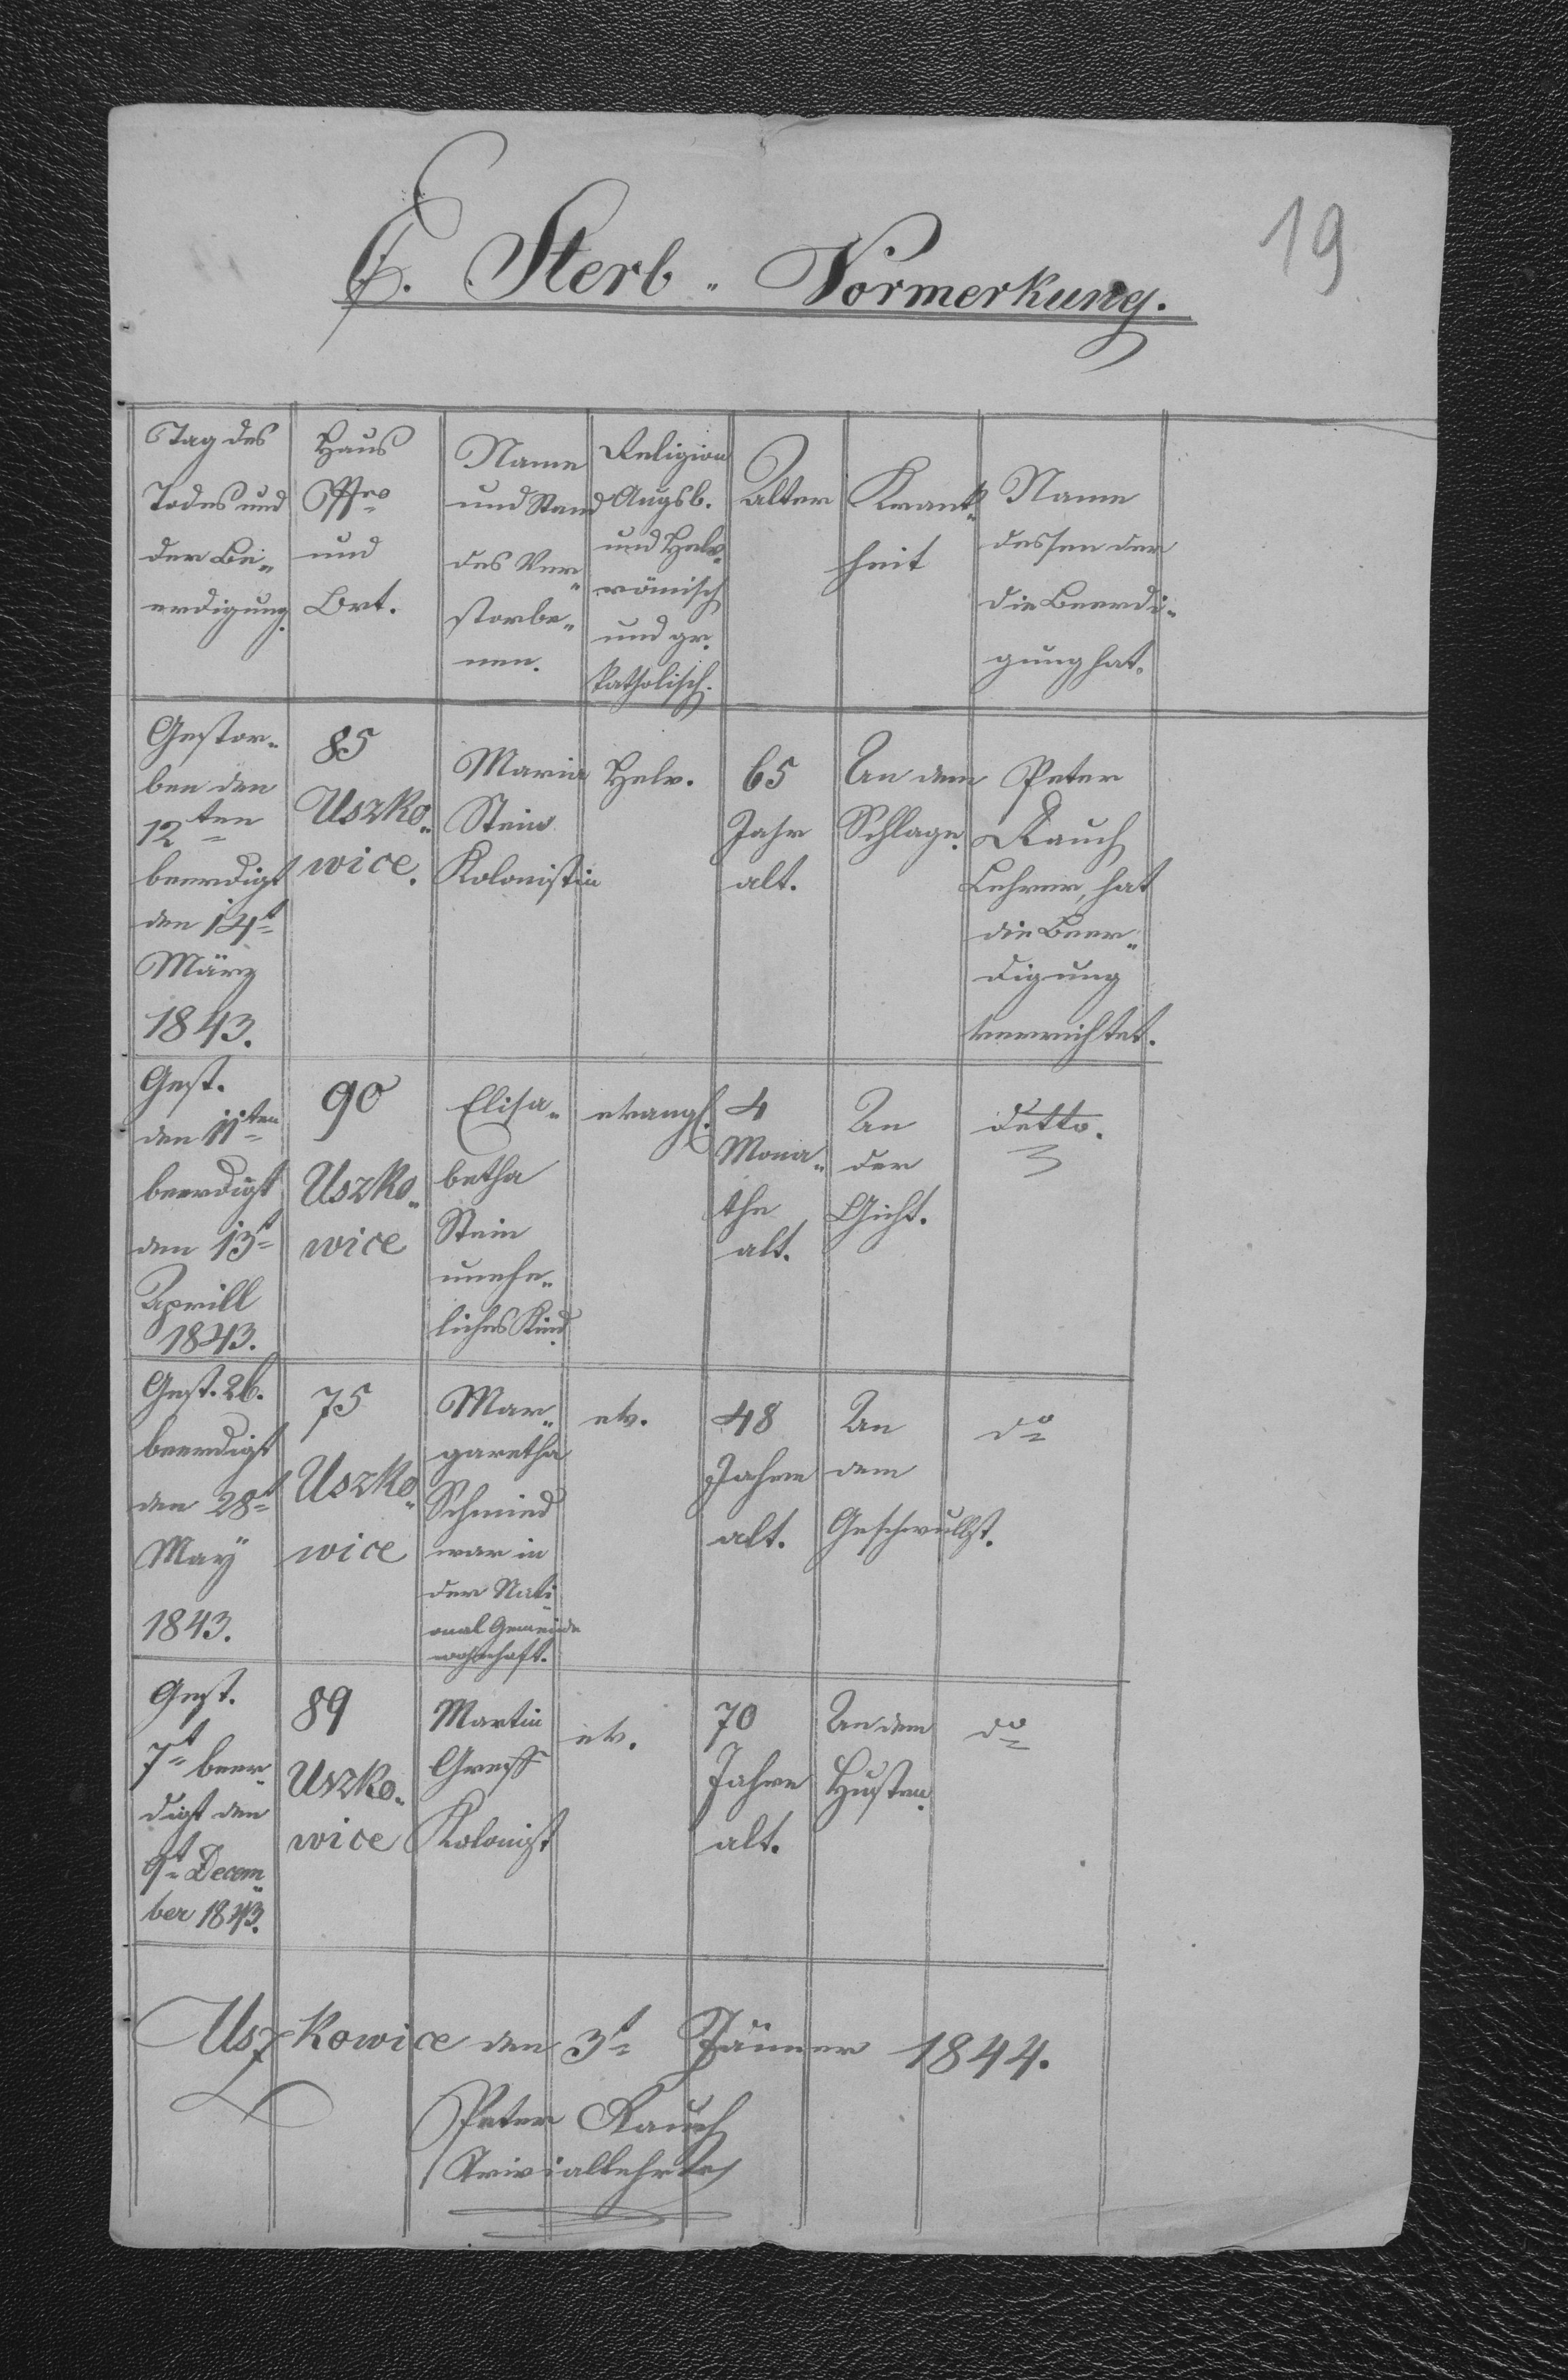 19
C. Sterb- Vormerkung.
Tag des
Todes und
der Be-
erdigung.
Haus
Nro
und
Ort.
Name
und Stand
des Ver-
storbe-
nen.
Religion
Augsb.
und Helv.
römisch
und gr.
katholisch.
Alter
Krank-
heit
Name
dessen der
die Beerdi-
gung hat.
Gestor-
ben den
12ten
beerdigt
den 14t
März
1843.
85
Uszko-
wice.
Maria
Stein
Kolonistin
Helv.
65
Jahr
alt.
An dem
Schlage.
Peter
Rauch
Lehrer, hat
die Beer-
digung
verrichtet.
Gest.
den 11ten
beerdigt
den 13t
Aprill
1843.
90
Uszko-
wice
Elisa-
betha
Stein
unehe-
liches Kind.
evangl.
4
Mona-
the
alt.
An
der
Gicht.
detto.
Gest. 26.
beerdigt
den 28t
May
1843.
75
Uszko-
wice
Mar-
garetha
Schmied
war in
der Nati-
onal Gemeinde
wohnhaft.
ev.
48
Jahre
alt.
An
dem
Geschwullst.
do
Gest.
7t beer-
digt den
9t Decem-
ber 1843.
89
Uszko-
wice
Martin
Greß
Kolonist
ev.
70
Jahre
alt.
An dem
Husten.
do
Uszkowice den 3t Jänner 1844.
Peter Rauch
Triviallehrer